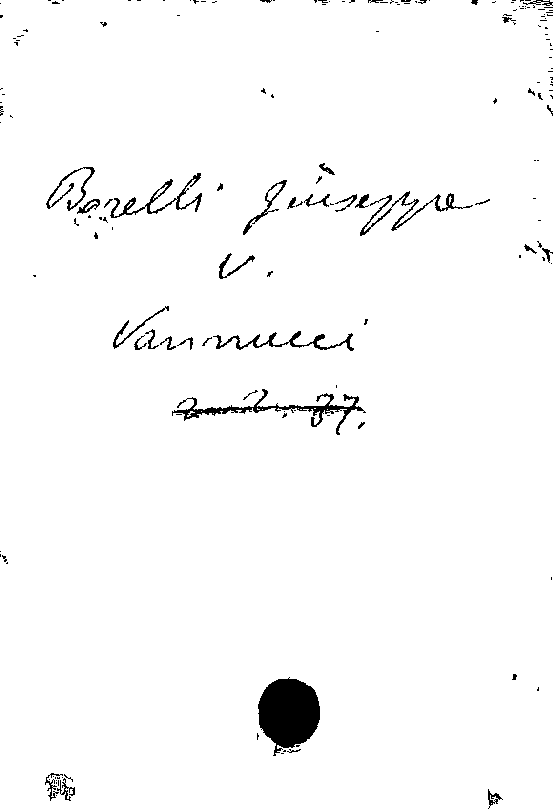 Borelli Giuseppe
v.
Vannucci
2. 2. 37.